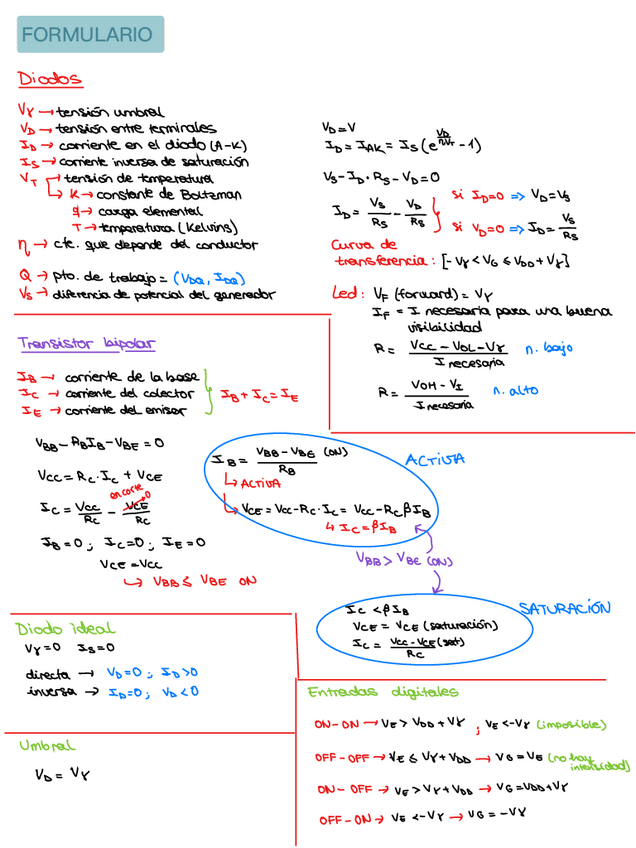 FORMULARIO
Diodos
Vγ → tensión umbral
V_D → tensión entre terminales
I_D → corriente en el diodo (A-K)
I_S → corriente inversa de saturación
V_T → tensión de temperatura
↳ K → constante de Boltzman
q → carga elemental
T → temperatura (Kelvins)
η → cte. que depende del conductor
Q → pto. de trabajo = (V_DQ, I_DQ)
V_S → diferencia de potencial del generador
V_D = V
I_D = I_AK = I_S (e^(V_D/ηV_T) - 1)
V_S - I_D · R_S - V_D = 0
I_D = V_S/R_S - V_D/R_S
si I_D=0 => V_D = V_S
si V_D=0 => I_D = V_S/R_S
Curva de
transferencia: [-Vγ < V_G ≤ V_DD + Vγ]
Led: V_F (forward) = Vγ
I_F = I necesaria para una buena
visibilidad
R = (V_CC - V_OL - Vγ)/(I necesaria) n. bajo
R = (V_OH - V_I)/(I necesaria) n. alto
Transistor bipolar
I_B → corriente de la base
I_C → corriente del colector
I_E → corriente del emisor
I_B + I_C = I_E
V_BB - R_B I_B - V_BE = 0
V_CC = R_C · I_C + V_CE
I_C = V_CC/R_C - V_CE/R_C
en corte 0
I_B = 0 ; I_C = 0 ; I_E = 0
V_CE = V_CC
↳ V_BB ≤ V_BE ON
I_B = (V_BB - V_BE (ON))/R_B
↳ ACTIVA
↳ V_CE = V_CC - R_C · I_C = V_CC - R_C β I_B
↳ I_C = β I_B
ACTIVA
V_BB > V_BE (ON)
I_C < β I_B
V_CE = V_CE (saturación)
I_C = (V_CC - V_CE (sat))/R_C
SATURACIÓN
Diodo ideal
Vγ = 0 I_S = 0
directa → V_D = 0 ; I_D > 0
inversa → I_D = 0 ; V_D < 0
Umbral
V_D = Vγ
Entradas digitales
ON-ON → V_E > V_DD + Vγ ; V_E < -Vγ (imposible)
OFF-OFF → V_E ≤ Vγ + V_DD → V_G = V_E (no hay
intensidad)
ON-OFF → V_E > Vγ + V_DD → V_G = V_DD + Vγ
OFF-ON → V_E < -Vγ → V_G = -Vγ